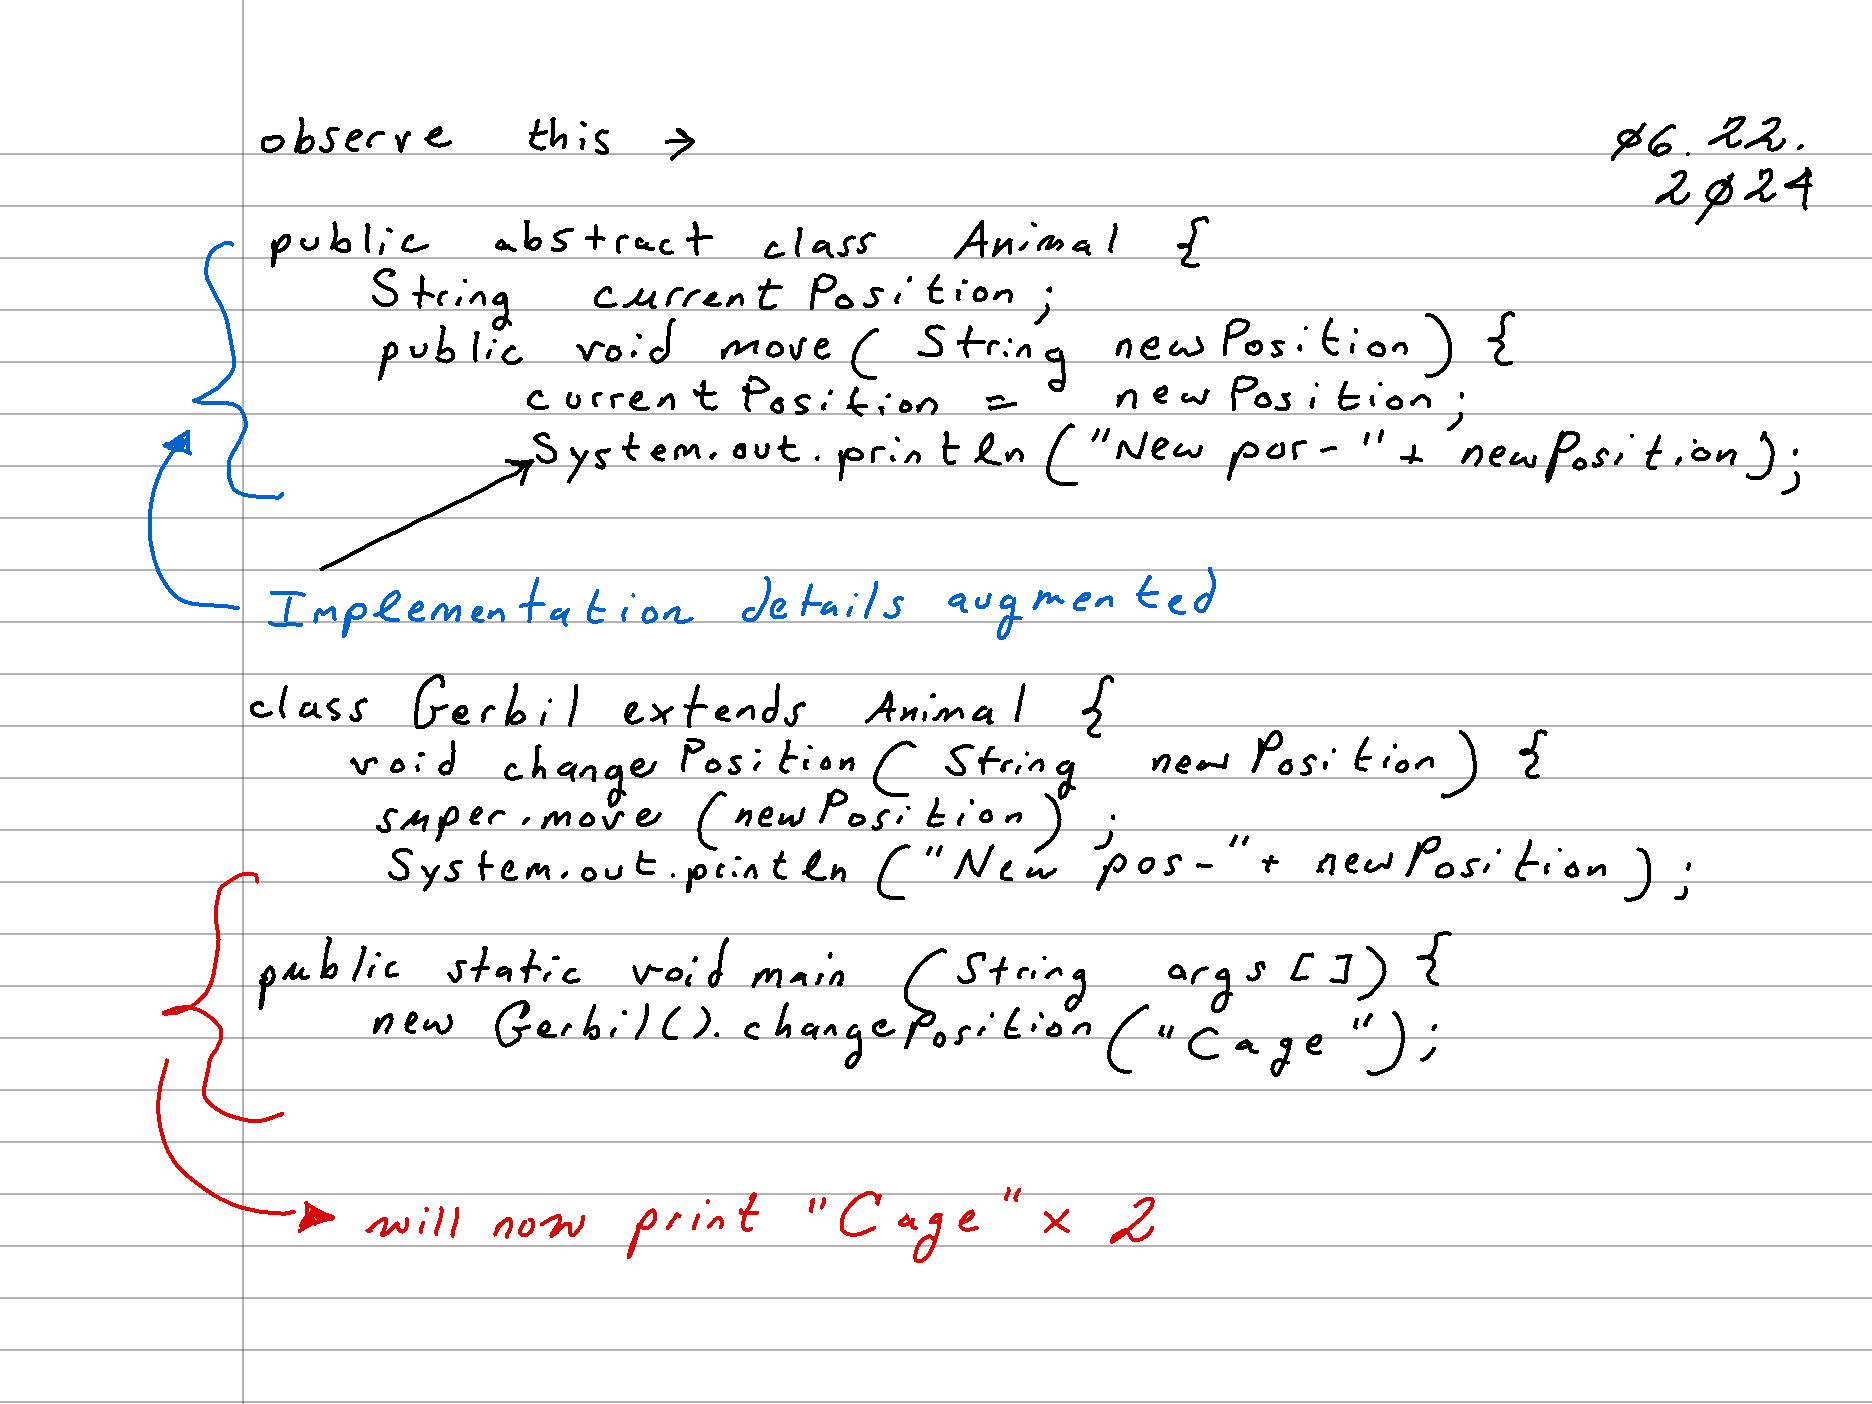 observe this →
ø6.22.
2ø24
public abstract class Animal {
String currentPosition;
public void move( String newPosition) {
currentPosition = newPosition;
System.out.println("New por-" + newPosition);
Implementation details augmented
class Gerbil extends Animal {
void changePosition( String newPosition) {
super.move (newPosition);
System.out.println ("New pos-"+ newPosition);
public static void main (String args[]) {
new Gerbil().changePosition("Cage");
will now print "Cage" x 2